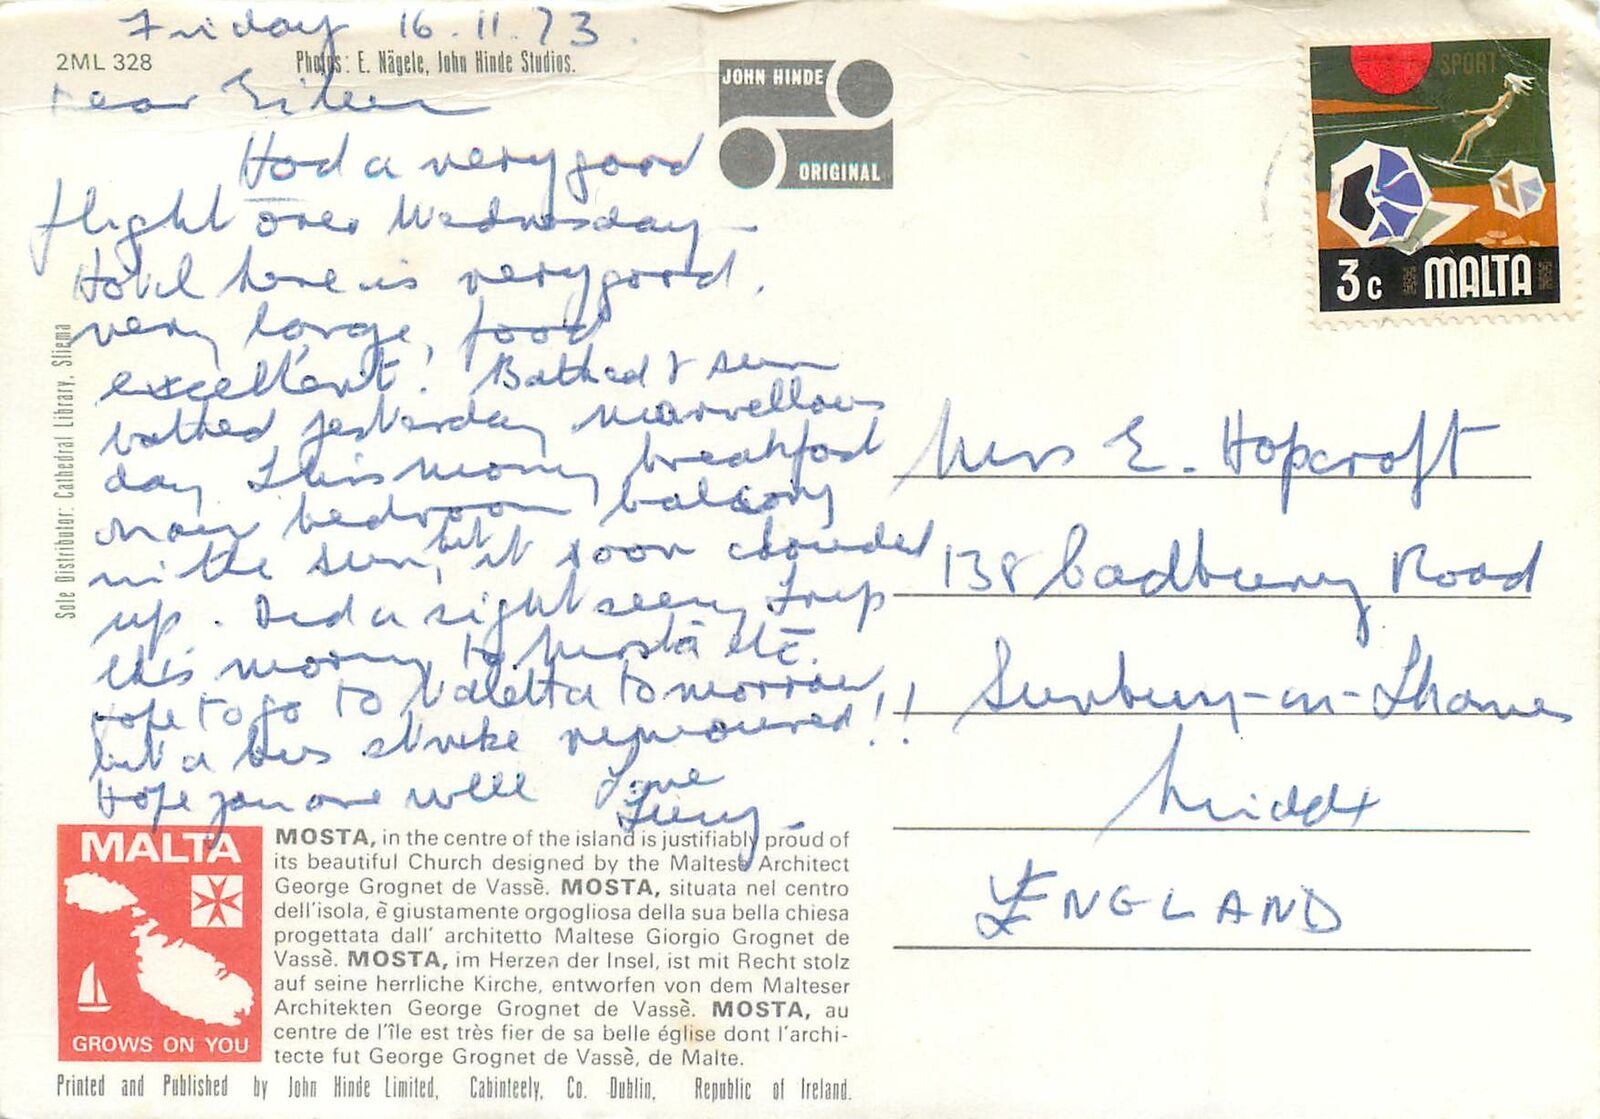 Friday 16.11.73.
2ML 328
Photos: E. Nägele, John Hinde Studios.
Dear Eileen
Had a very good
flight over Wednesday -
Hotel here is very good,
very large, food
excellent! Bathed & sun
bathed yesterday marvellous
day. This morning breakfast
on my bedroom balcony
in the sun, but it soon clouded
up. Did a sight seeing trip
this morning to Mosta etc.
Hope to go to Valetta tomorrow
but a bus strike rumoured!!!
Hope you are well Love
JOHN HINDE
ORIGINAL
SPORT
3c MALTA
Mrs E. Hopcroft
138 Cadbury Road
Sunbury-on-Thames
Middx
ENGLAND
Sole Distributor: Cathedral Library, Sliema
MALTA
GROWS ON YOU
MOSTA, in the centre of the island is justifiably proud of
its beautiful Church designed by the Maltese Architect
George Grognet de Vassè. MOSTA, situata nel centro
dell'isola, è giustamente orgogliosa della sua bella chiesa
progettata dall' architetto Maltese Giorgio Grognet de
Vassè. MOSTA, im Herzen der Insel, ist mit Recht stolz
auf seine herrliche Kirche, entworfen von dem Malteser
Architekten George Grognet de Vassè. MOSTA, au
centre de l'île est très fier de sa belle église dont l'archi-
tecte fut George Grognet de Vassè, de Malte.
Printed and Published by John Hinde Limited, Cabinteely, Co. Dublin, Republic of Ireland.